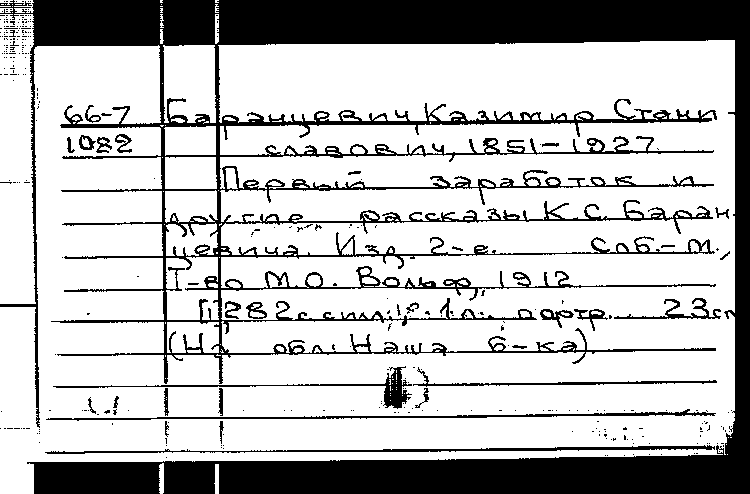 66-7 Баранцевич, Казимир Стани-
1082 славович, 1851-1927
Первый заработок и
другие рассказы К.С. Баран-
цевича. Изд. 2-е. Спб.-М.,
Т-во М.О. Вольф, 1912
[1] 282 с с илл.; 1 л. портр. 23 см
(На обл: Наша б-ка).